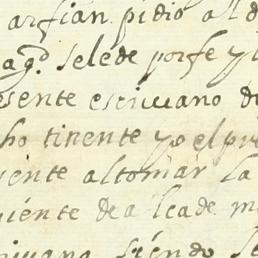 arfian pidio al d
agd selede porfe y
esente escriuano d
ho tinente yo el pre
sente al tomar la
iente de alcade m
riuano siendo se